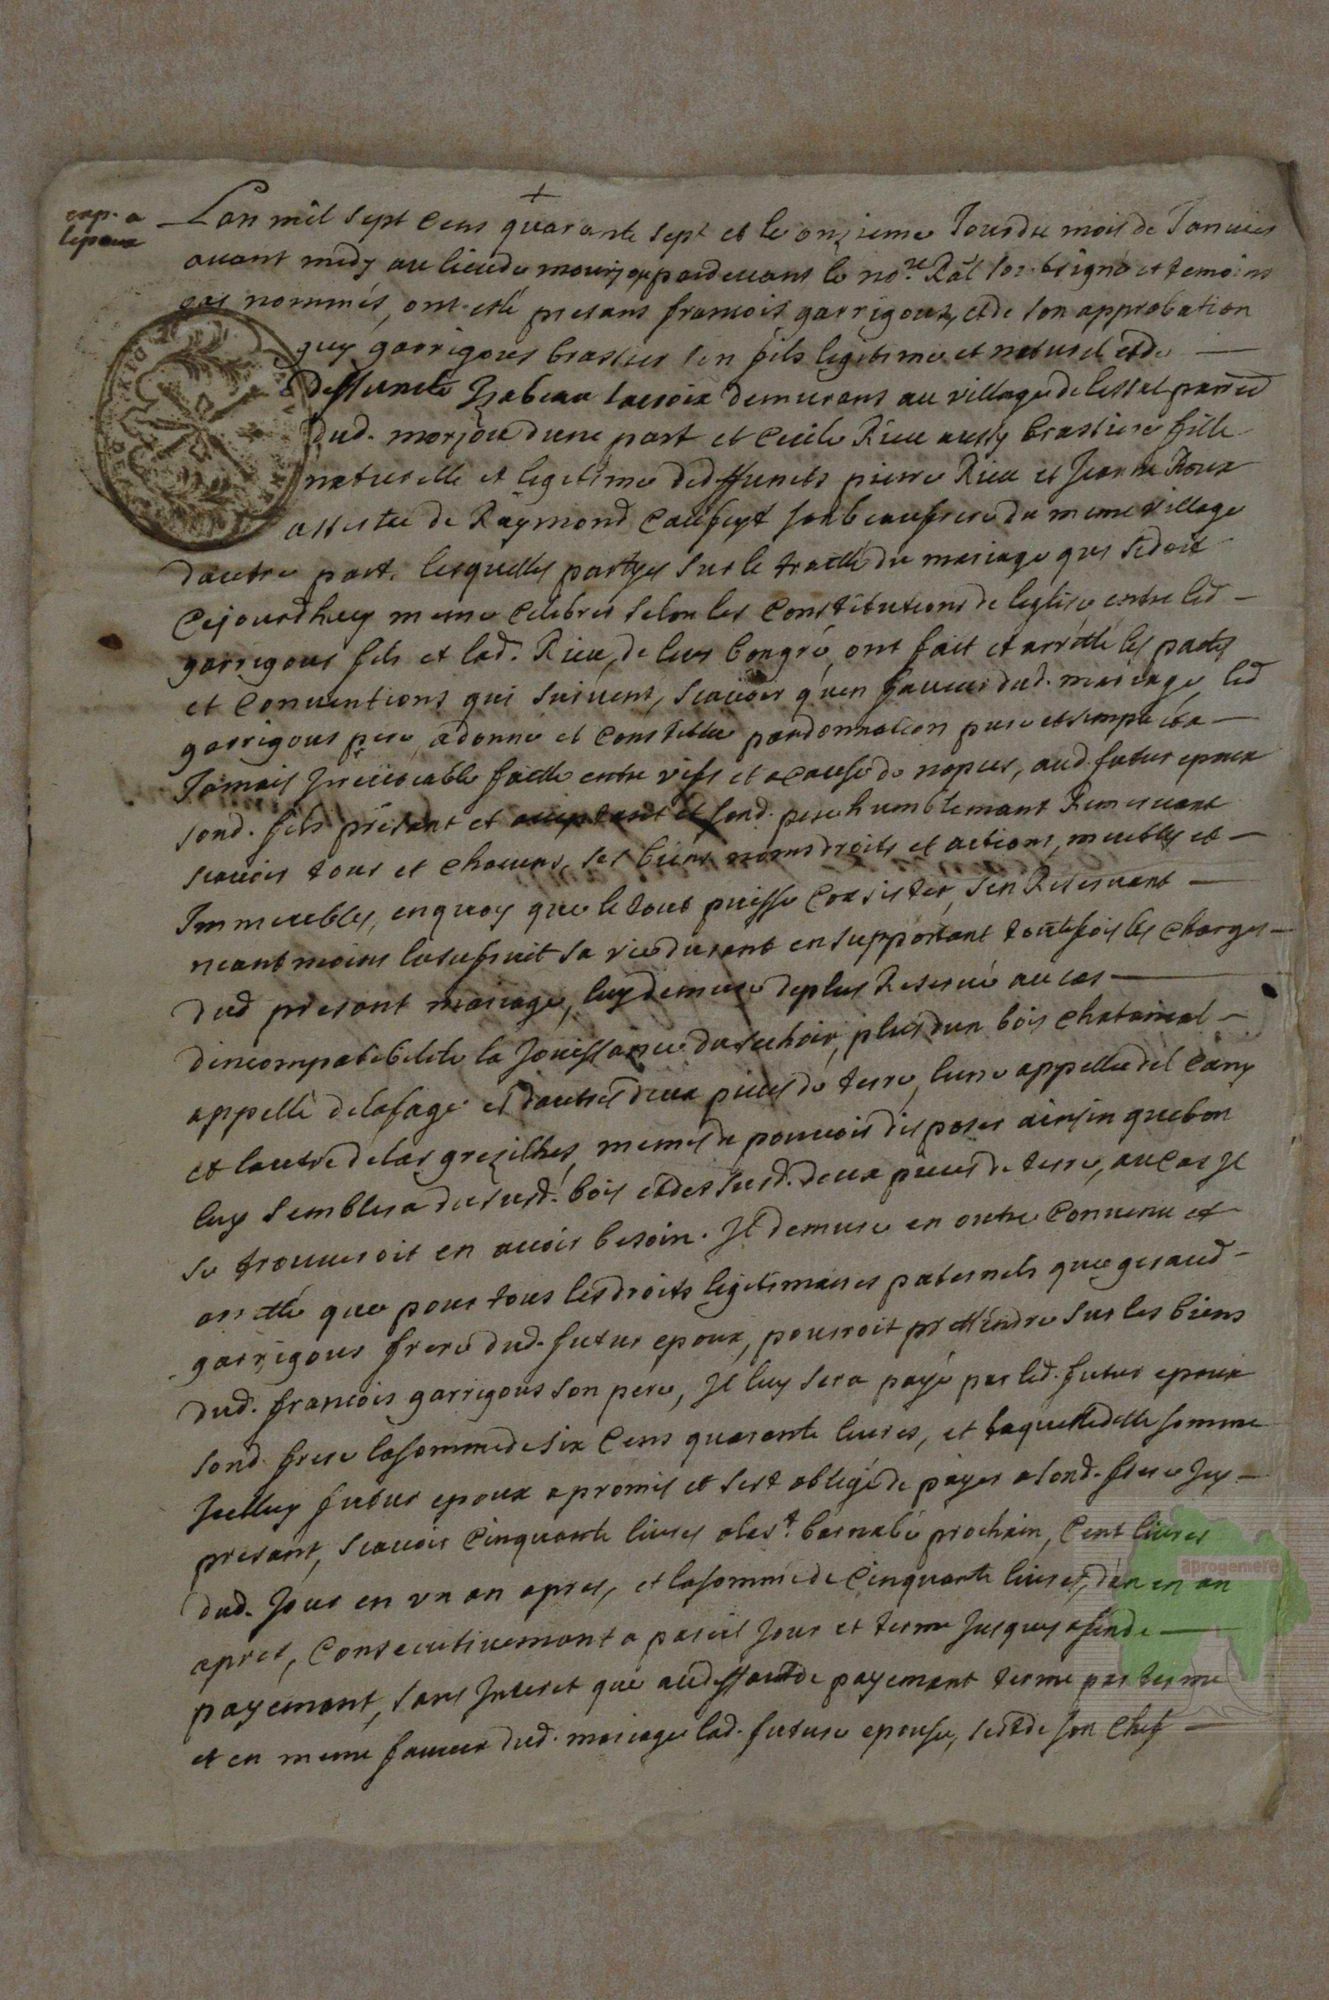 exp. a
lepoux
Lan mil sept cens quarante sept et le onzieme Jour du mois de Janvier
avant midy au lieu de mourjou pardevant le no.re Ral soubsigné et temoins
bas nommés, ont esté presans francois garrigoux, et de son approbation
guy garrigous brassier son fils legitime et naturel et de
deffuncte Izabeau lacroix demurans au village de lessal parr.e
dud. morjou dune part et Cecile Rieu aussy brassiere fille
naturelle et legitime de deffuncts pierre Rieu et Jeanne Roux
assistée de Raymond Caufeyt son beaufrere du meme village
dautre part. lesquelles partyes sur le traitté du mariage qui sedoit
Cejourdhuy meme Celebrer selon les Constitutions de leglise entre led
garrigous fils et lad. Rieu, de leur bongré, ont fait et arretté les pactes
et Conventions qui suivent, scavoir qu'en faveur dud. mariage, led
garrigous pere, a donné et Constitué par donnation pure et simple et a
Jamais Irrevocable faitte entre vifs et a cause de nopces, aud. futur epoux
sond. fils présant et acceptant et sond. pere humblemant Remerciant
scavoir tous et chacuns, ses biens noms droits et actions, meubles et
Immeubles, en quoy que le tout puisse Consister, sen Reservant
neantmoins lusufruit sa vie durant en supportant toutefois les charges
dud presant mariage, luy demure deplus Reservé au cas
dincompatibilité la Jouissance du sechoir, plus dun bois chatainal
appellé de lafage et dautres deux pieces de terre, lune appellée del Camp
et lautre de las grezilhes, memes de pouvoir disposer ainsin que bon
luy semblera du susd. bois et des susd. deux pieces de terre, au cas Il
se trouveroit en avoir besoin. Il demure en outre Convenu et
arretté que pour tous les droits legitimaires paternels que geraud
garrigous frere dud. futur epoux, pourroit prettendre sur les biens
dud. francois garrigous son pere, Il luy sera payé par led. futur epoux
sond. frere la somme de six Cens quarante livres, et laquelle ditte somme
Icelluy futur epoux a promis et sest obligé de payer a sond. frere Icy
presant, scavoir Cinquante livres a la s.t barnabé prochain, Cent livres
dud. Jour en un an apres, et la somme de Cinquante livres, dan en an
apres, Consecutivemant a pareil Jour et terme Jusques a fin de
payemant, sans Interet que a deffaut de payemant terme par terme
et en meme faveur dud. mariage lad. future epouse, sest de son Chef
aprogemere